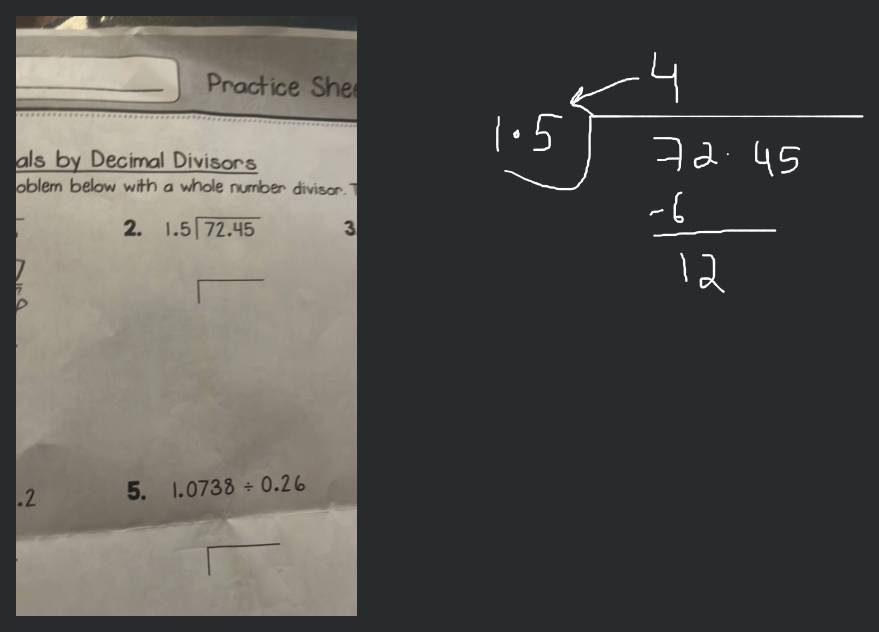 Practice She
als by Decimal Divisors
oblem below with a whole number divisor. T
2. 1.5 72.45
3
.2
5. 1.0738 ÷ 0.26
4
1.5 72.45
-6
12